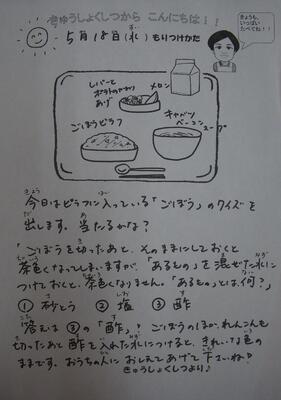 きゅうしょくしつから こんにちは!!
きょうも、
いっぱい
たべてね!!
5月18日(水)もりつけかた
レバーと
ポテトのかりん
あげ
メロン
ごぼうピラフ
キャベツ
ベーコン
スープ
今日はピラフに入っている「ごぼう」のクイズを
出します。当たるかな?
「ごぼうを切ったあと、そのままにしておくと
茶色くなってしまいますが、「あるもの」を混ぜた水に
つけておくと、茶色くなりません。「あるもの」とは、何?」
① 砂とう ② 塩 ③ 酢
答えは ③の「酢」! ごぼうのほか、れんこんも
切ったあと酢を入れた水につけると、きれいな色の
ままです。おうちの人に おしえてあげて下さいね!
きゅうしょくしつより♪